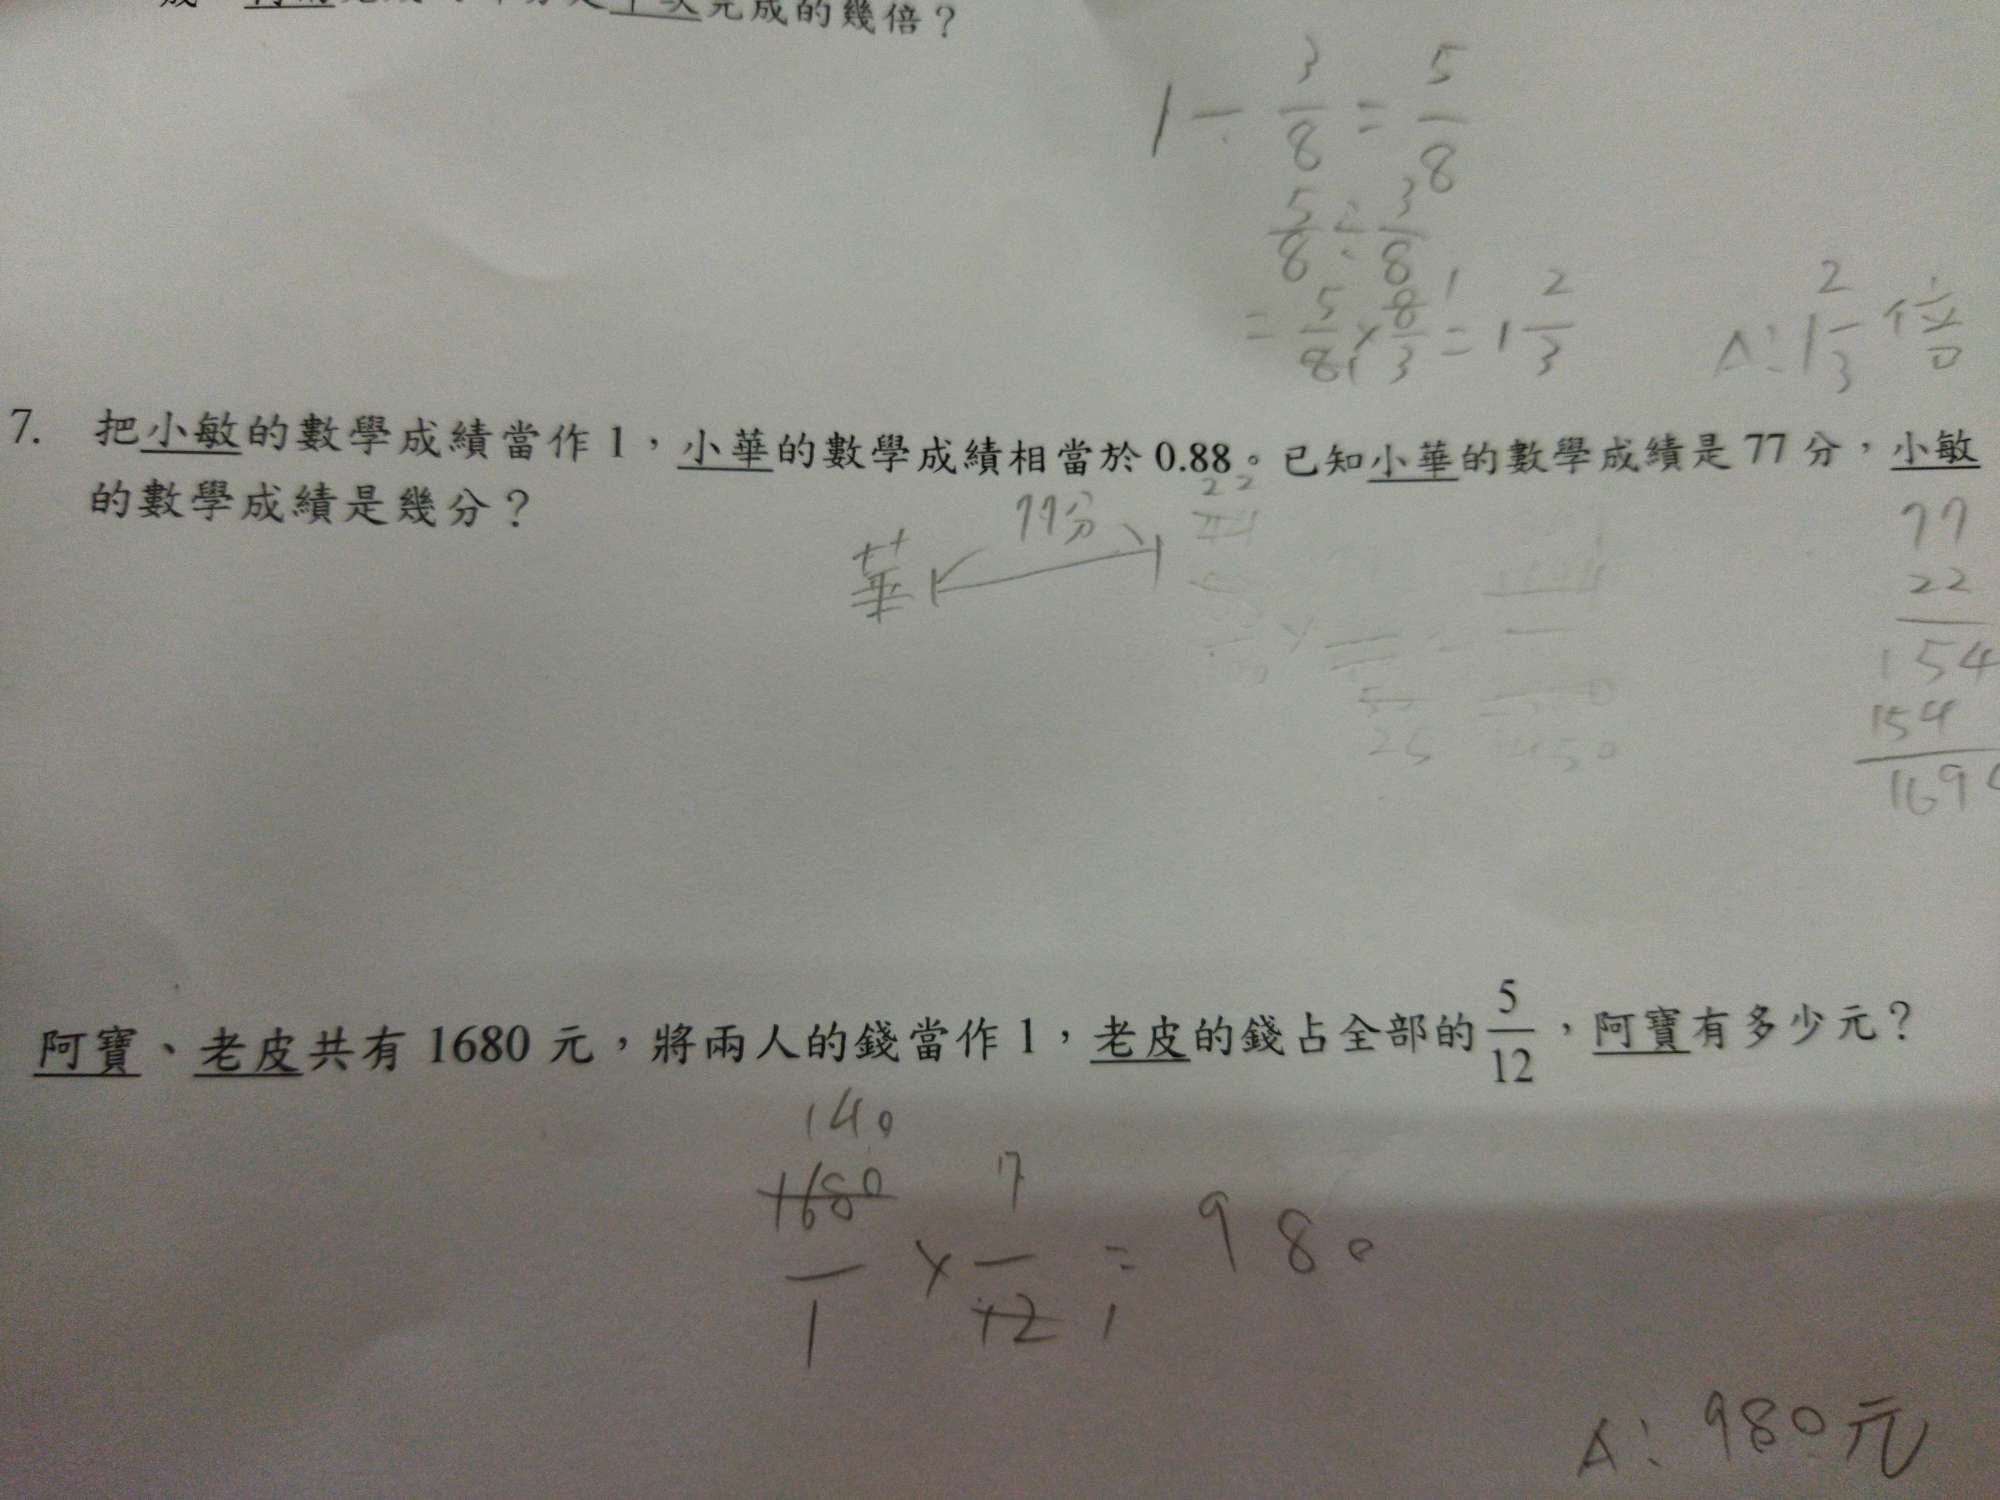 完成的幾倍？
1 - 3/8 = 5/8
5/8 ÷ 3/8
= 5/8 1 × 8/3 1 = 1 2/3
A：1 2/3 倍
7. 把小敏的數學成績當作 1，小華的數學成績相當於 0.88。已知小華的數學成績是 77 分，小敏
的數學成績是幾分？
華 77分
22
77
22
154
154
169
25
阿寶、老皮共有 1680 元，將兩人的錢當作 1，老皮的錢占全部的 5/12，阿寶有多少元？
140
1680/1 × 7/12 1 = 980
A：980元